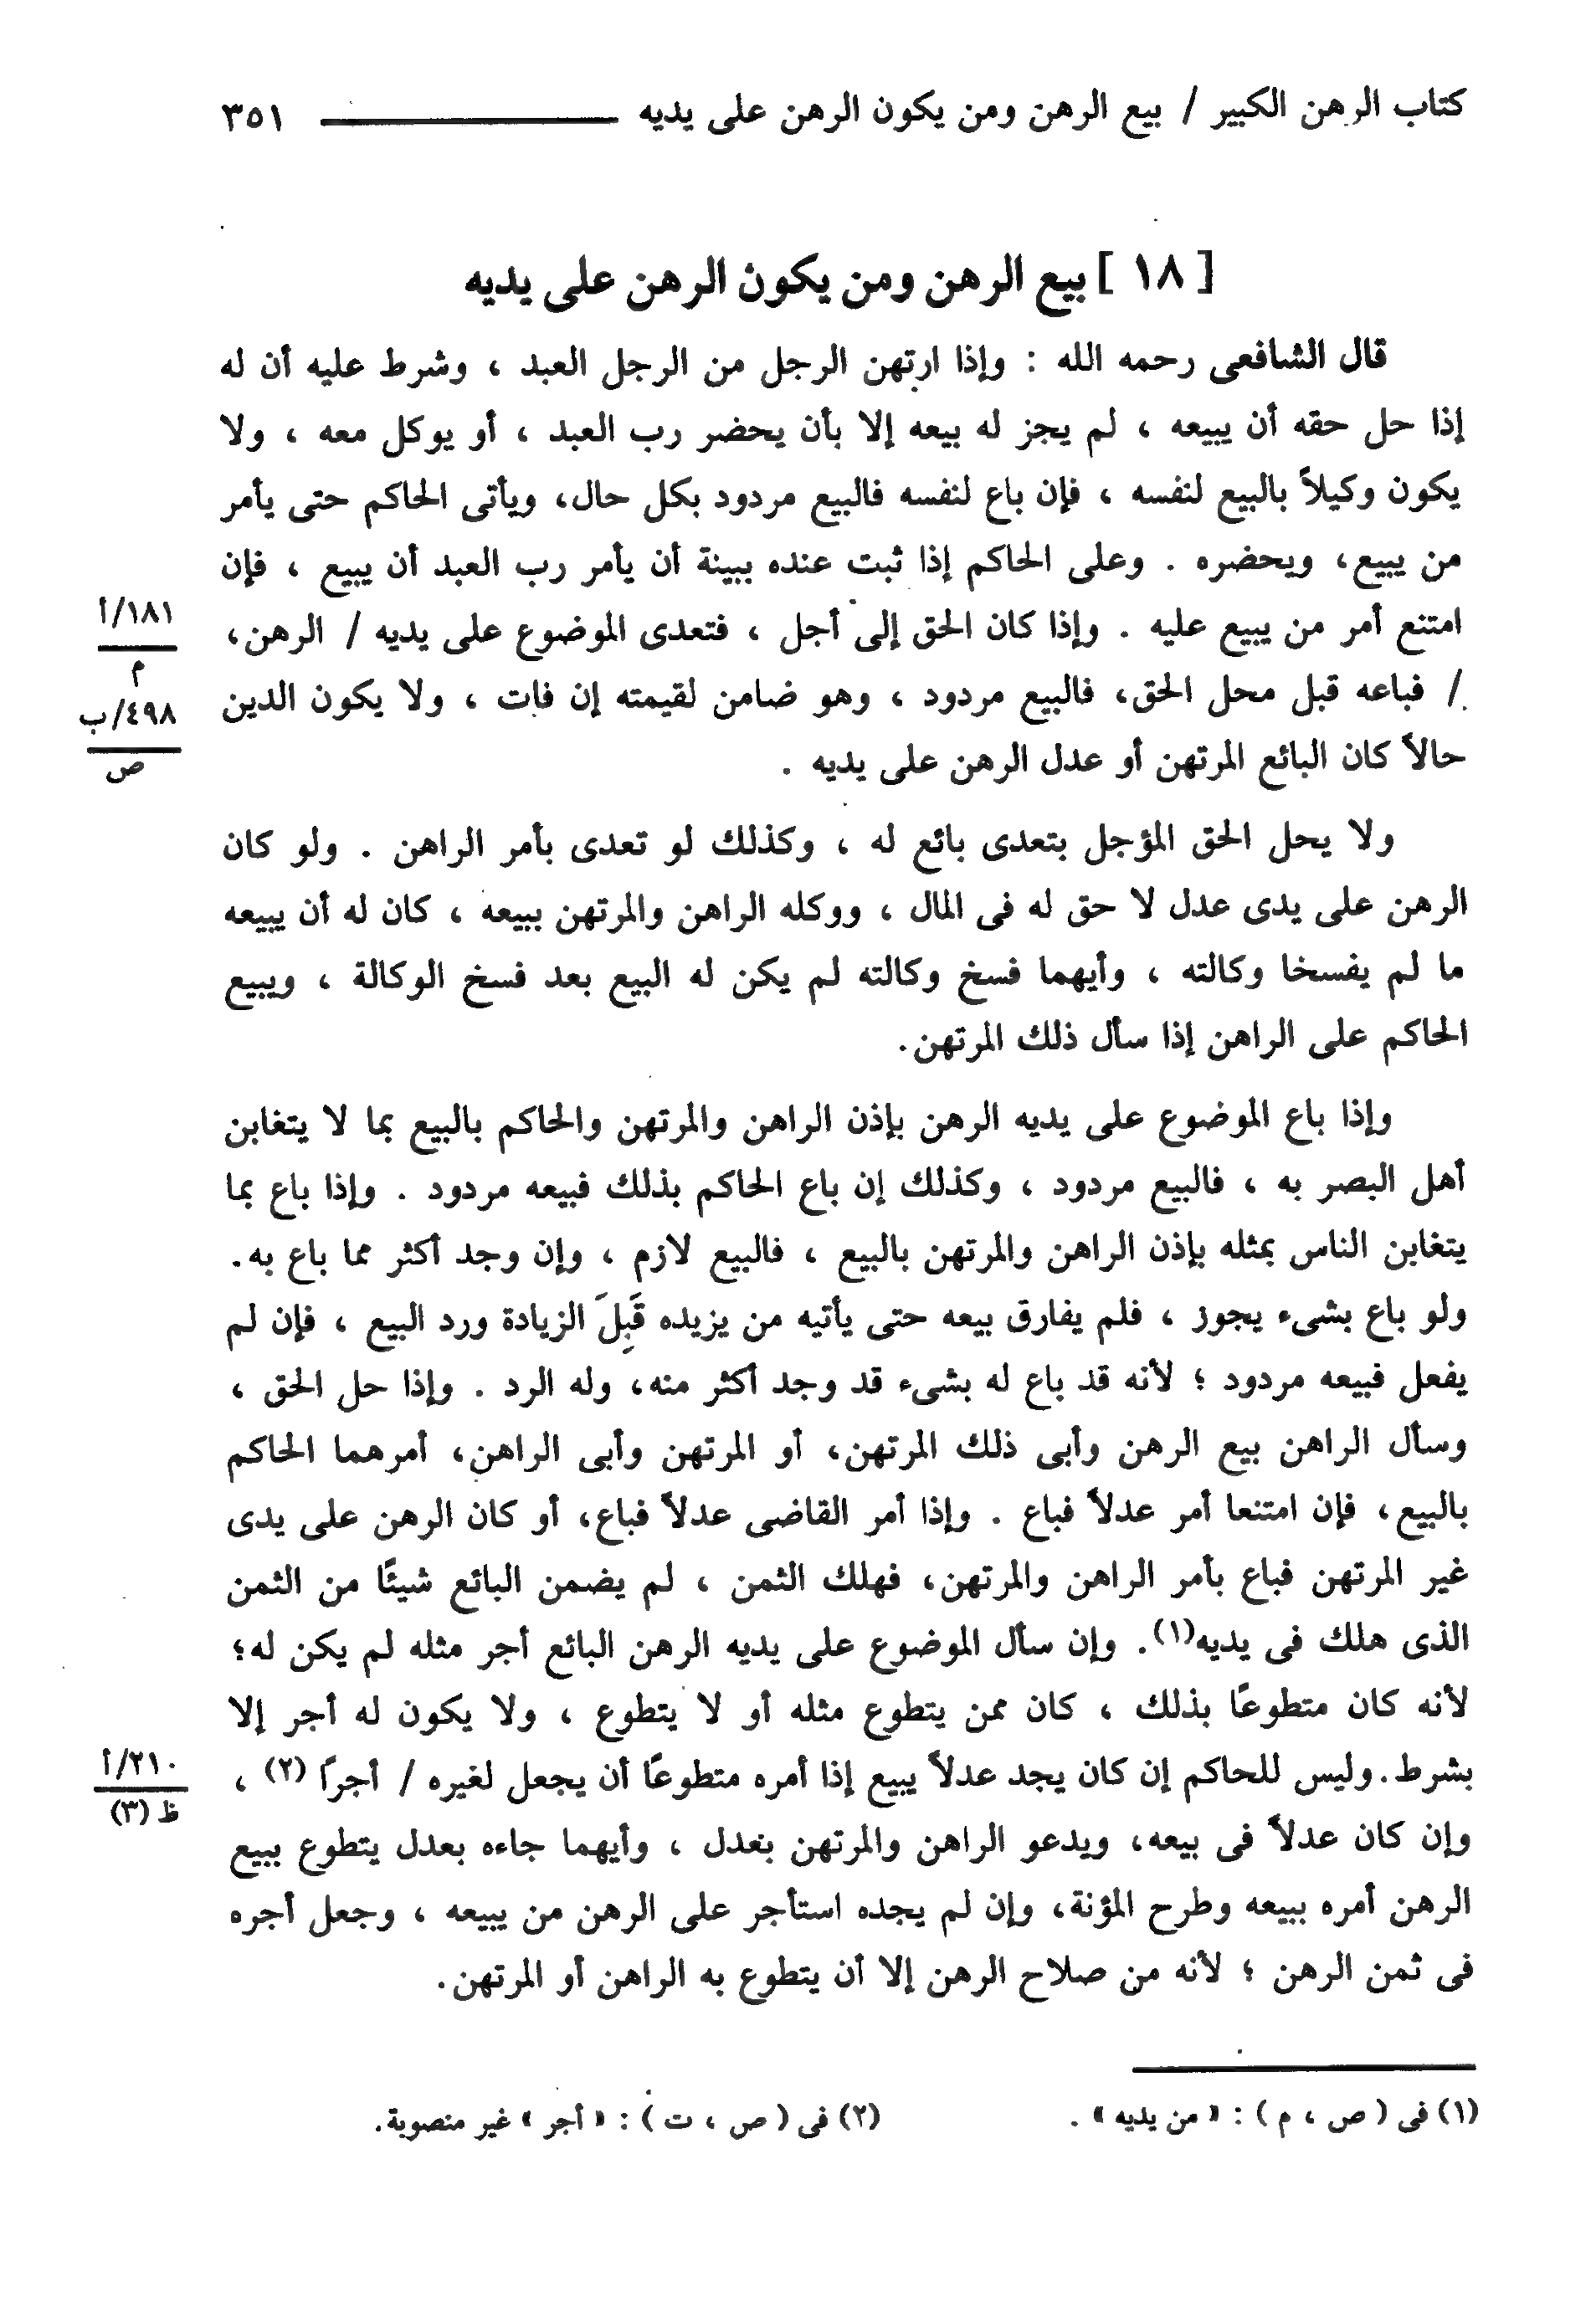 كتاب الرهن الكبير / بيع الرهن ومن يكون الرهن على يديه ــــــــــ ٣٥١
[ ١٨ ] بيع الرهن ومن يكون الرهن على يديه
قال الشافعى رحمه الله : وإذا ارتهن الرجل من الرجل العبد ، وشرط عليه أن له
إذا حل حقه أن يبيعه ، لم يجز له بيعه إلا بأن يحضر رب العبد ، أو يوكل معه ، ولا
يكون وكيلاً بالبيع لنفسه ، فإن باع لنفسه فالبيع مردود بكل حال، ويأتى الحاكم حتى يأمر
من يبيع، ويحضره . وعلى الحاكم إذا ثبت عنده ببينة أن يأمر رب العبد أن يبيع ، فإن
امتنع أمر من يبيع عليه . وإذا كان الحق إلى أجل ، فتعدى الموضوع على يديه / الرهن،
/ فباعه قبل محل الحق، فالبيع مردود ، وهو ضامن لقيمته إن فات ، ولا يكون الدين
حالاً كان البائع المرتهن أو عدل الرهن على يديه .
١٨١/أ
م
٤٩٨/ب
ص
ولا يحل الحق المؤجل بتعدى بائع له ، وكذلك لو تعدى بأمر الراهن . ولو كان
الرهن على يدى عدل لا حق له فى المال ، ووكله الراهن والمرتهن ببيعه ، كان له أن يبيعه
ما لم يفسخا وكالته ، وأيهما فسخ وكالته لم يكن له البيع بعد فسخ الوكالة ، ويبيع
الحاكم على الراهن إذا سأل ذلك المرتهن.
وإذا باع الموضوع على يديه الرهن بإذن الراهن والمرتهن والحاكم بالبيع بما لا يتغابن
أهل البصر به ، فالبيع مردود ، وكذلك إن باع الحاكم بذلك فبيعه مردود . وإذا باع بما
يتغابن الناس بمثله بإذن الراهن والمرتهن بالبيع ، فالبيع لازم ، وإن وجد أكثر مما باع به.
ولو باع بشىء يجوز ، فلم يفارق بيعه حتى يأتيه من يزيده قَبِلَ الزيادة ورد البيع ، فإن لم
يفعل فبيعه مردود ؛ لأنه قد باع له بشىء قد وجد أكثر منه، وله الرد . وإذا حل الحق ،
وسأل الراهن بيع الرهن وأبى ذلك المرتهن، أو المرتهن وأبى الراهن، أمرهما الحاكم
بالبيع، فإن امتنعا أمر عدلاً فباع . وإذا أمر القاضى عدلاً فباع، أو كان الرهن على يدى
غير المرتهن فباع بأمر الراهن والمرتهن، فهلك الثمن ، لم يضمن البائع شيئًا من الثمن
الذى هلك فى يديه(١). وإن سأل الموضوع على يديه الرهن البائع أجر مثله لم يكن له؛
لأنه كان متطوعًا بذلك ، كان ممن يتطوع مثله أو لا يتطوع ، ولا يكون له أجر إلا
بشرط. وليس للحاكم إن كان يجد عدلاً يبيع إذا أمره متطوعًا أن يجعل لغيره / أجرًا (٢) ،
٢١٠/أ
ظ (٣)
وإن كان عدلاً فى بيعه، ويدعو الراهن والمرتهن بعدل ، وأيهما جاءه بعدل يتطوع ببيع
الرهن أمره ببيعه وطرح المؤنة، وإن لم يجده استأجر على الرهن من يبيعه ، وجعل أجره
فى ثمن الرهن ؛ لأنه من صلاح الرهن إلا أن يتطوع به الراهن أو المرتهن.
(١) فى ( ص ، م ) : « من يديه » .
(٢) فى ( ص ، ت ) : « أجر » غير منصوبة.